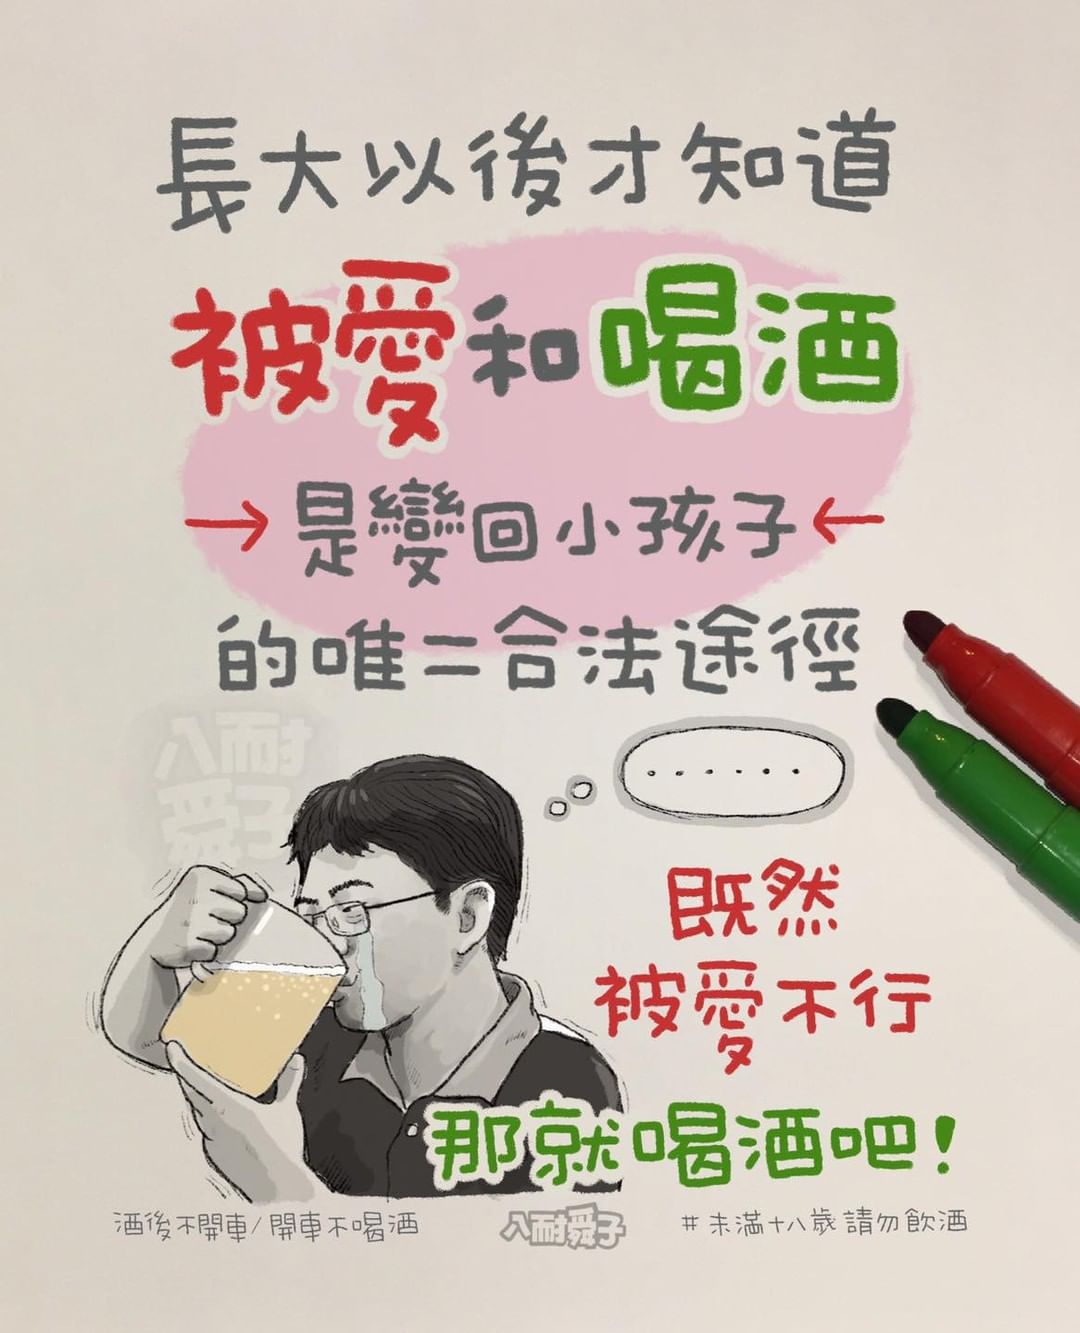 長大以後才知道
被愛和喝酒
→是變回小孩子←
的唯二合法途徑
八耐
舜子
......
既然
被愛不行
那就喝酒吧!
酒後不開車/開車不喝酒
八耐舜子
#未滿十八歲請勿飲酒